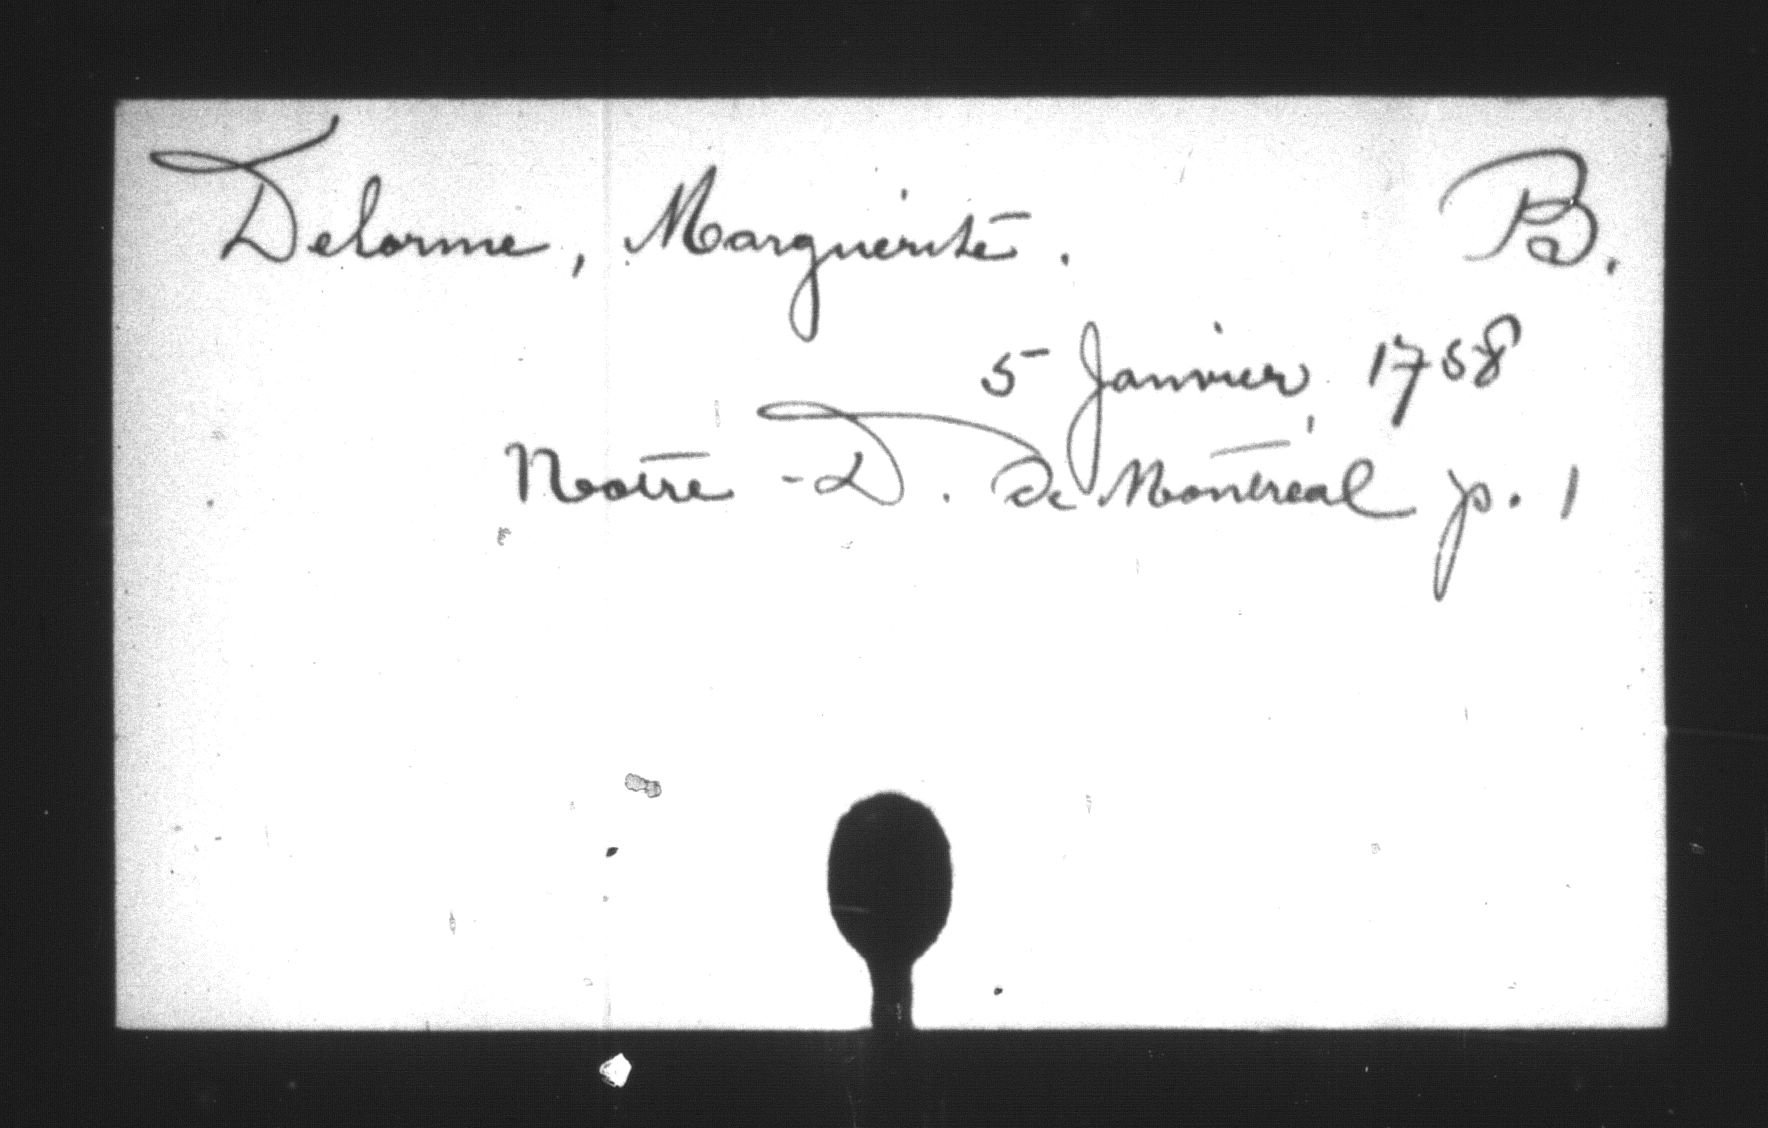 Delorme, Marguerite. B.
5 Janvier 1758
Notre-D. de Montréal p. 1